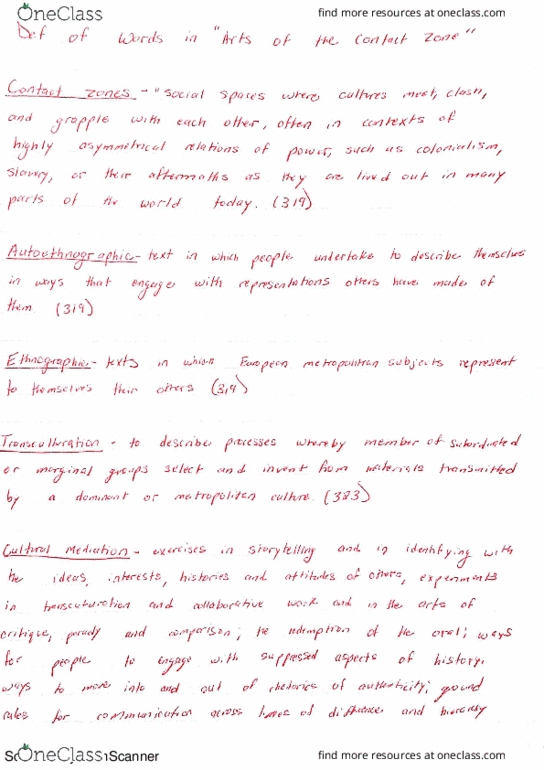 OneClass find more resources at oneclass.com
Def of Words in "Arts of the Contact Zone"
Contact zones - "Social spaces where cultures meet, clash,
and grapple with each other, often in contexts of
highly asymmetrical relations of power, such as colonialism,
slavery, or their aftermaths as they are lived out in many
parts of the world today. (319)
Autoethnographic - text in which people undertake to describe themselves
in ways that engage with representations others have made of
them. (319)
Ethnographic - texts in which European metropolitan subjects represent
to themselves their others (319)
Transculturation - to describe processes whereby member of subordinated
or marginal groups select and invent from materials transmitted
by a dominant or metropolitan culture. (323)
Cultural Mediation - exercises in storytelling and in identifying with
the ideas, interests, histories and attitudes of others, experiments
in transculturation and collaborative work and in the arts of
critique, parody and comparison; the redemption of the oral; ways
for people to engage with suppressed aspects of history.
ways to move into and out of rhetorics of authenticity; ground
rules for communication across lines of difference and hierarchy
OneClass Scanner find more resources at oneclass.com